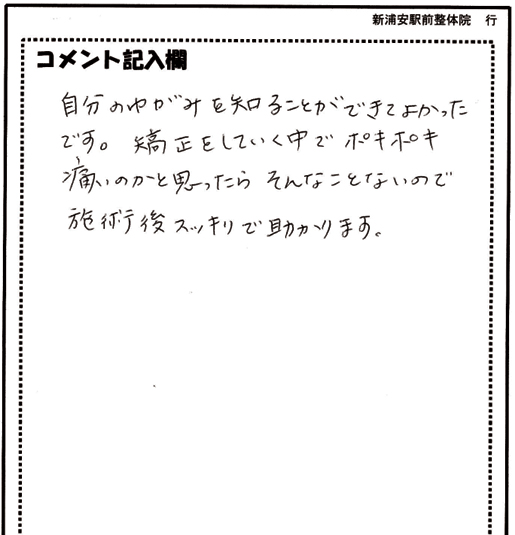 新浦安駅前整体院 行
コメント記入欄
自分のゆがみを知ることができてよかった
です。矯正をしていく中でポキポキ
痛いのかと思ったらそんなことないので
施術後スッキリで助かります。